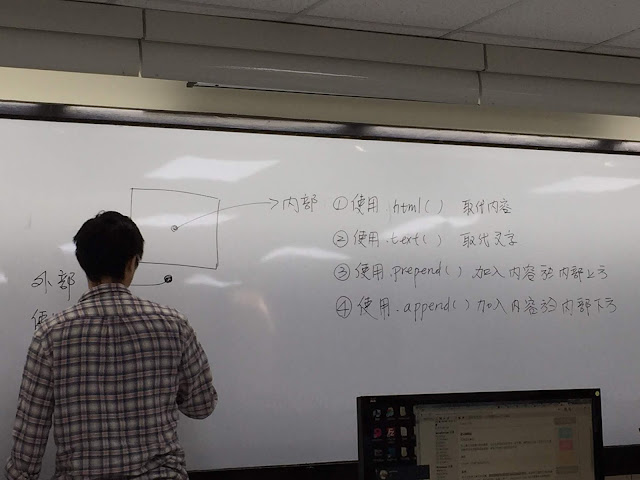 內部 ①使用 .html() 取代內容
②使用 .text() 取代文字
③使用 .prepend() 加入內容至內部上方
④使用 .append() 加入內容於內部下方
外部
使